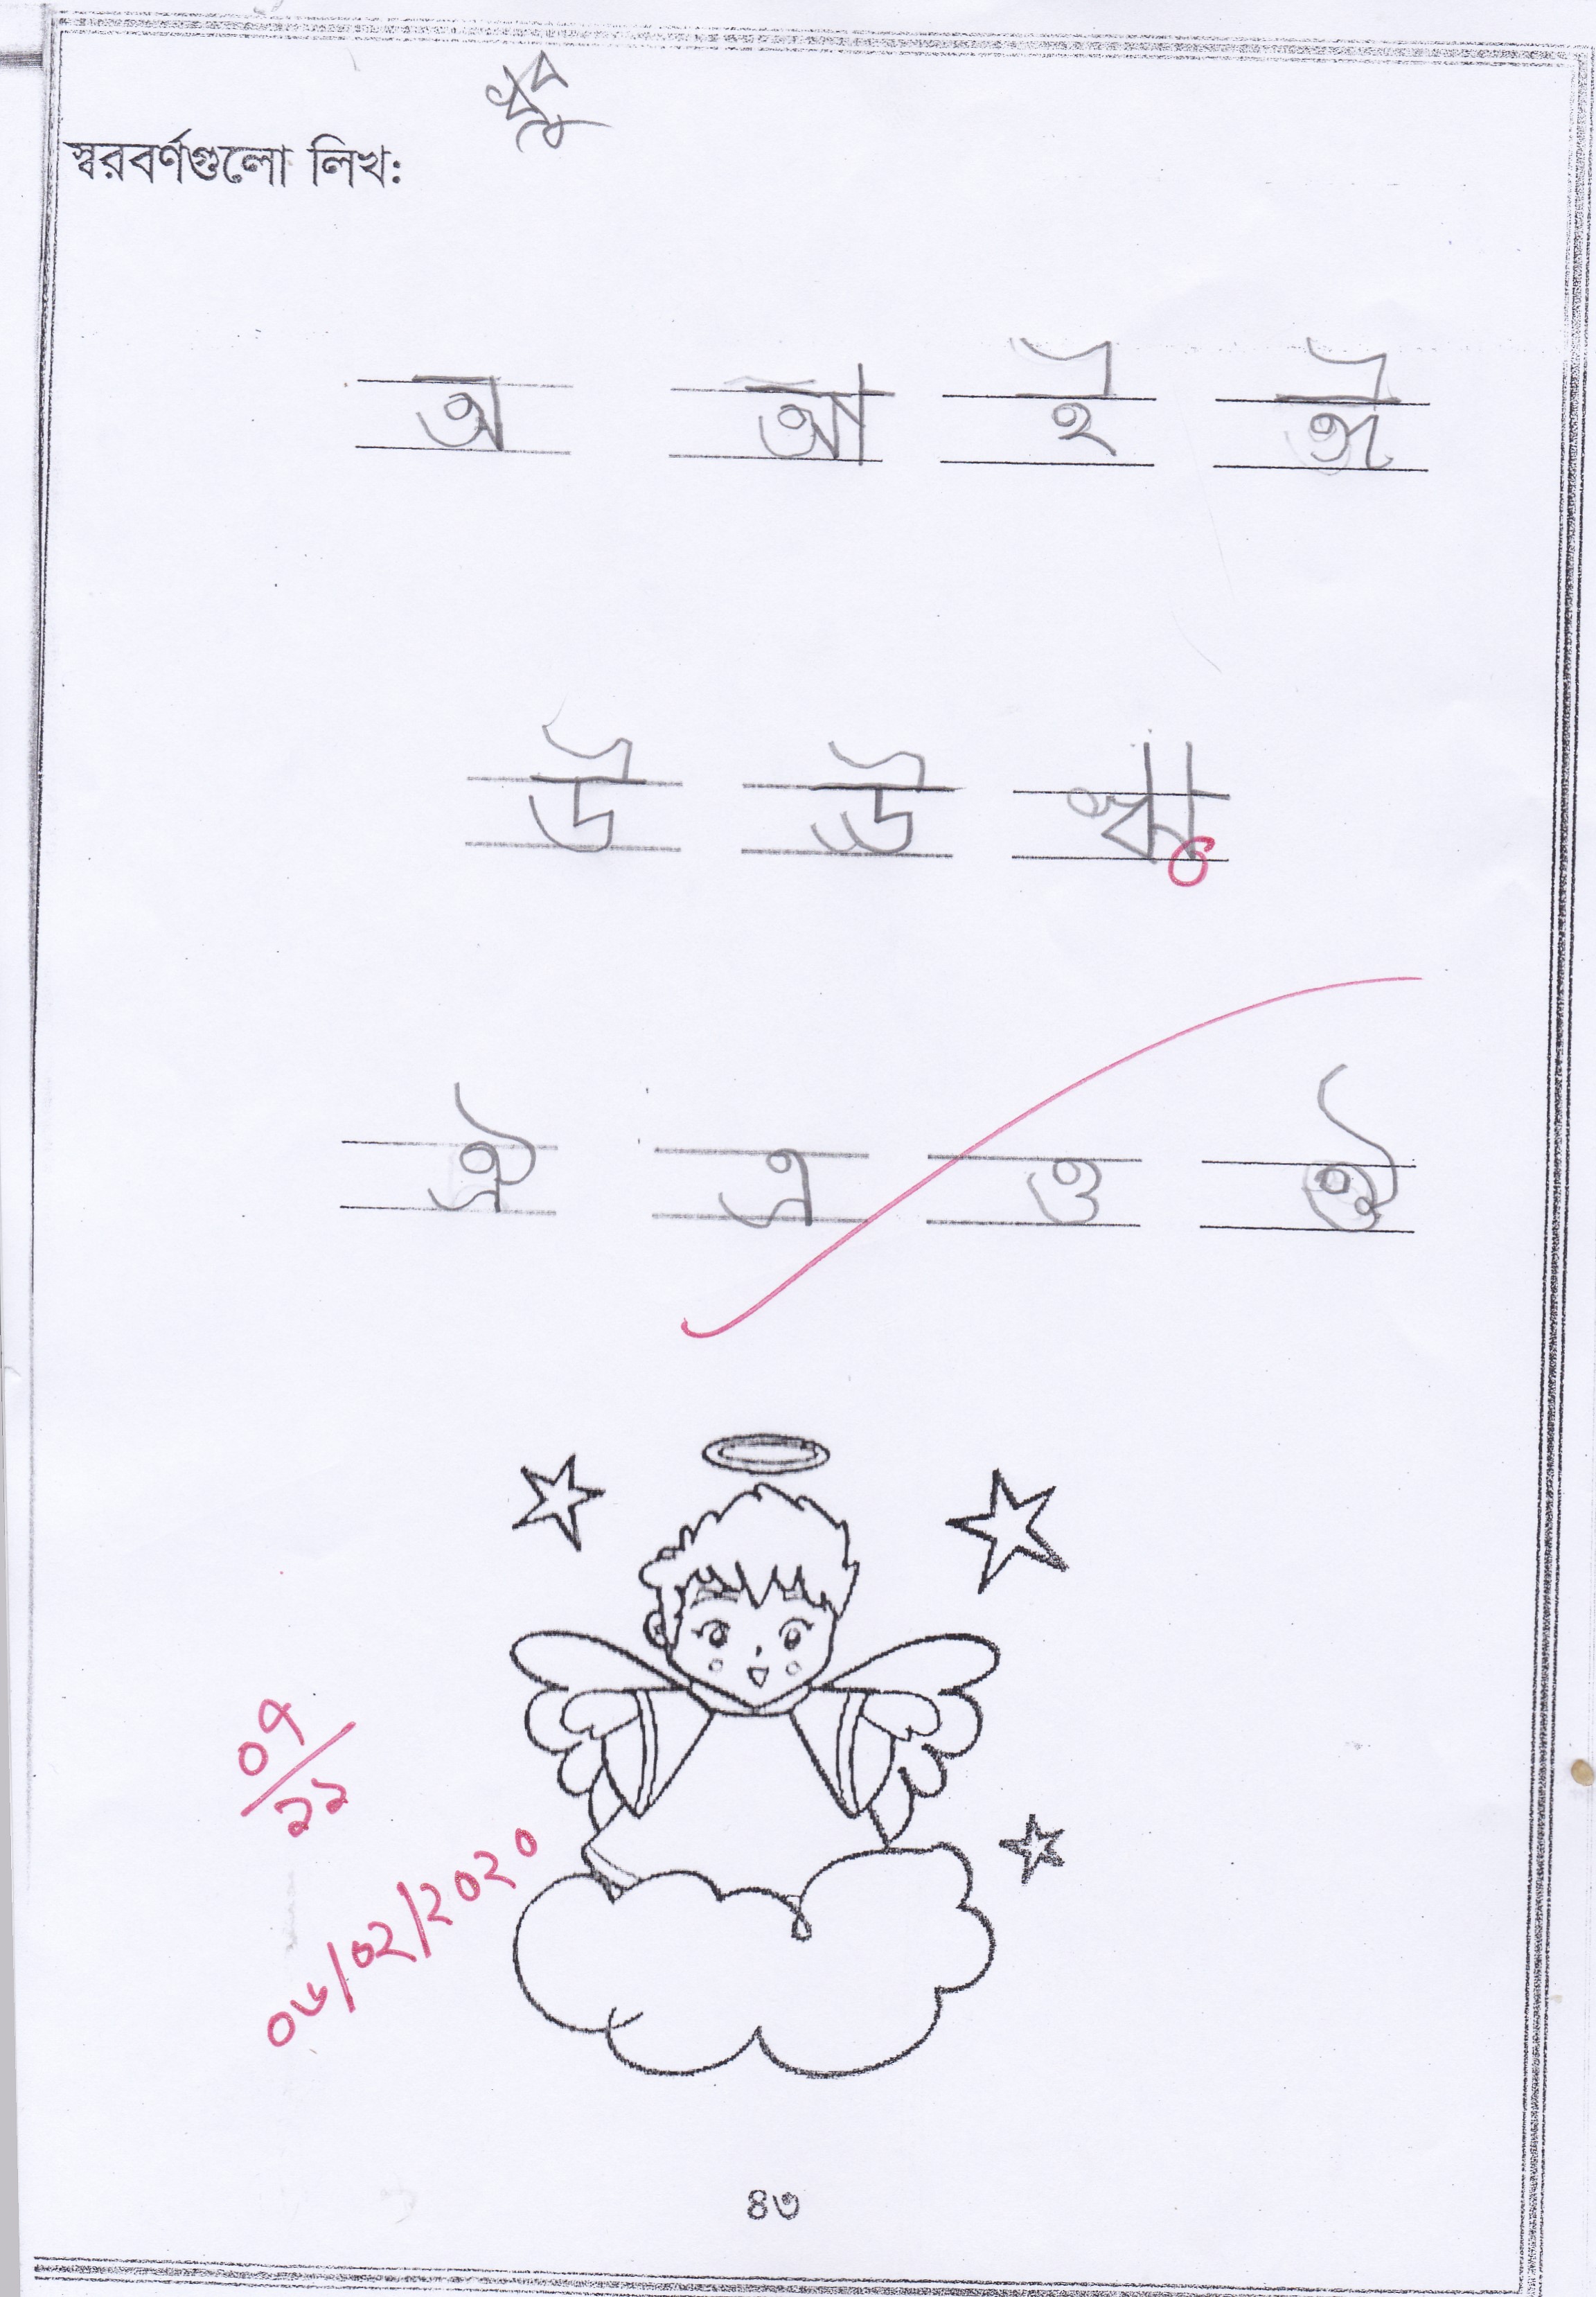 স্বরবর্ণগুলো লিখ:
অ আ ই ঈ
উ ঊ ঋ
ঐ এ ও ঔ
০৭/১১
০৬/০২/২০২০
৪৩